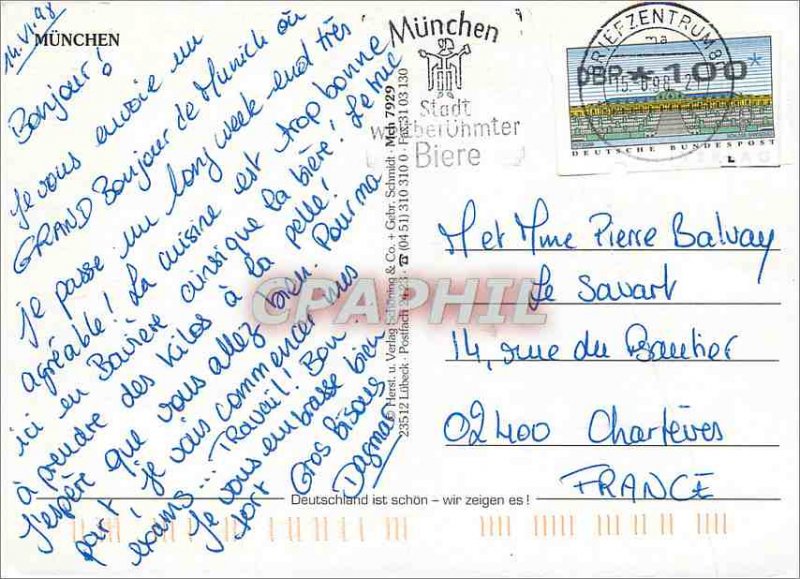 14.VI.98
MÜNCHEN
Bonjour!
Je vous envoie un
GRAND Bonjour de Munich où
je passe un long week-end très
agréable! La cuisine est trop bonne
ici en Bavière ainsi que la bière! Je
à prendre des kilos à la pelle!
J'espère que vous allez bien. Pour ma
part, je vais commencer mes
exams... Travail! Bon.
Je vous embrasse bien
fort Gros bisous
Dagmar
© Herst. u. Verlag Schöning & Co. + Gebr. Schmidt · Mch 7929
23512 Lübeck · Postfach 24 23 · ☎ (04 51) 310 310 0 · Fax 31 03 130
Deutschland ist schön – wir zeigen es!
München
Stadt
weltberühmter
Biere
BRIEFZENTRUM 8
ma
15.6.98
DBP * 1,00 *
DEUTSCHE BUNDESPOST
M et Mme Pierre Balvay
Le Savart
14, rue du
02400 Chartèves
FRANCE
CPAPHIL